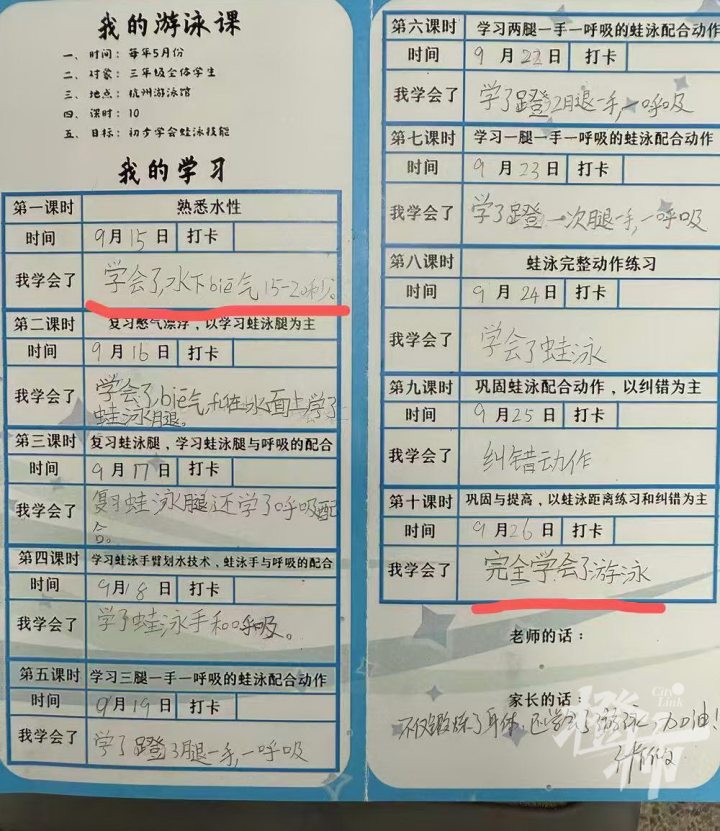 我的游泳课
一、时间：每年5月份
二、对象：三年级全体学生
三、地点：杭州游泳馆
四、课时：10
五、目标：初步学会蛙泳技能
我的学习
第一课时 熟悉水性
时间 9月15日 打卡
我学会了 学会了,水下bie气15-20秒。
第二课时 复习憋气漂浮，以学习蛙泳腿为主
时间 9月16日 打卡
我学会了 学会了,bie气,fu在水面上学了
蛙泳腿。
第三课时 复习蛙泳腿，学习蛙泳腿与呼吸的配合
时间 9月17日 打卡
我学会了 复习蛙泳腿还学了呼吸配
合。
第四课时 学习蛙泳手臂划水技术，蛙泳手与呼吸的配合
时间 9月18日 打卡
我学会了 学了蛙泳手和呼吸。
第五课时 学习三腿一手一呼吸的蛙泳配合动作
时间 9月19日 打卡
我学会了 学了蹬3腿一手,一呼吸
第六课时 学习两腿一手一呼吸的蛙泳配合动作
时间 9月22日 打卡
我学会了 学了蹬2腿一手,一呼吸
第七课时 学习一腿一手一呼吸的蛙泳配合动作
时间 9月23日 打卡
我学会了 学了蹬一次腿一手,一呼吸
第八课时 蛙泳完整动作练习
时间 9月24日 打卡
我学会了 学会了蛙泳
第九课时 巩固蛙泳配合动作，以纠错为主
时间 9月25日 打卡
我学会了 纠错动作
第十课时 巩固与提高，以蛙泳距离练习和纠错为主
时间 9月26日 打卡
我学会了 完全学会了游泳
老师的话：
家长的话：
不仅锻炼了身体,还学会了游泳,加油!
City Link
橙柿